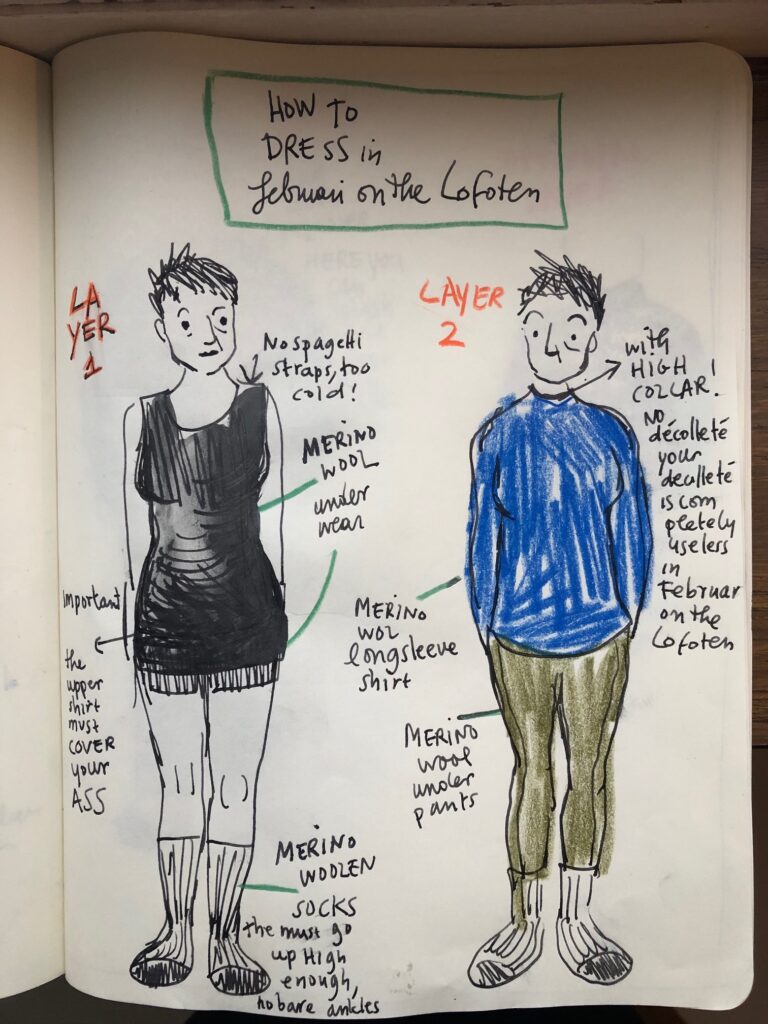 HOW TO
DRESS in
februari on the Lofoten
LA
YER
1
No spagetti
straps, too
cold!
MERINO
WOOL
under
wear
important
the
upper
shirt
must
COVER
your
ASS
MERINO
WOOLEN
SOCKS
the must go
up High
enough,
no bare ankles
LAYER
2
with
HIGH
COLLAR!
NO
décolleté
your
decolleté
is com
pletely
useless
in
Februar
on the
Lofoten
MERINO
WOL
longsleeve
shirt
MERINO
wool
under
pants